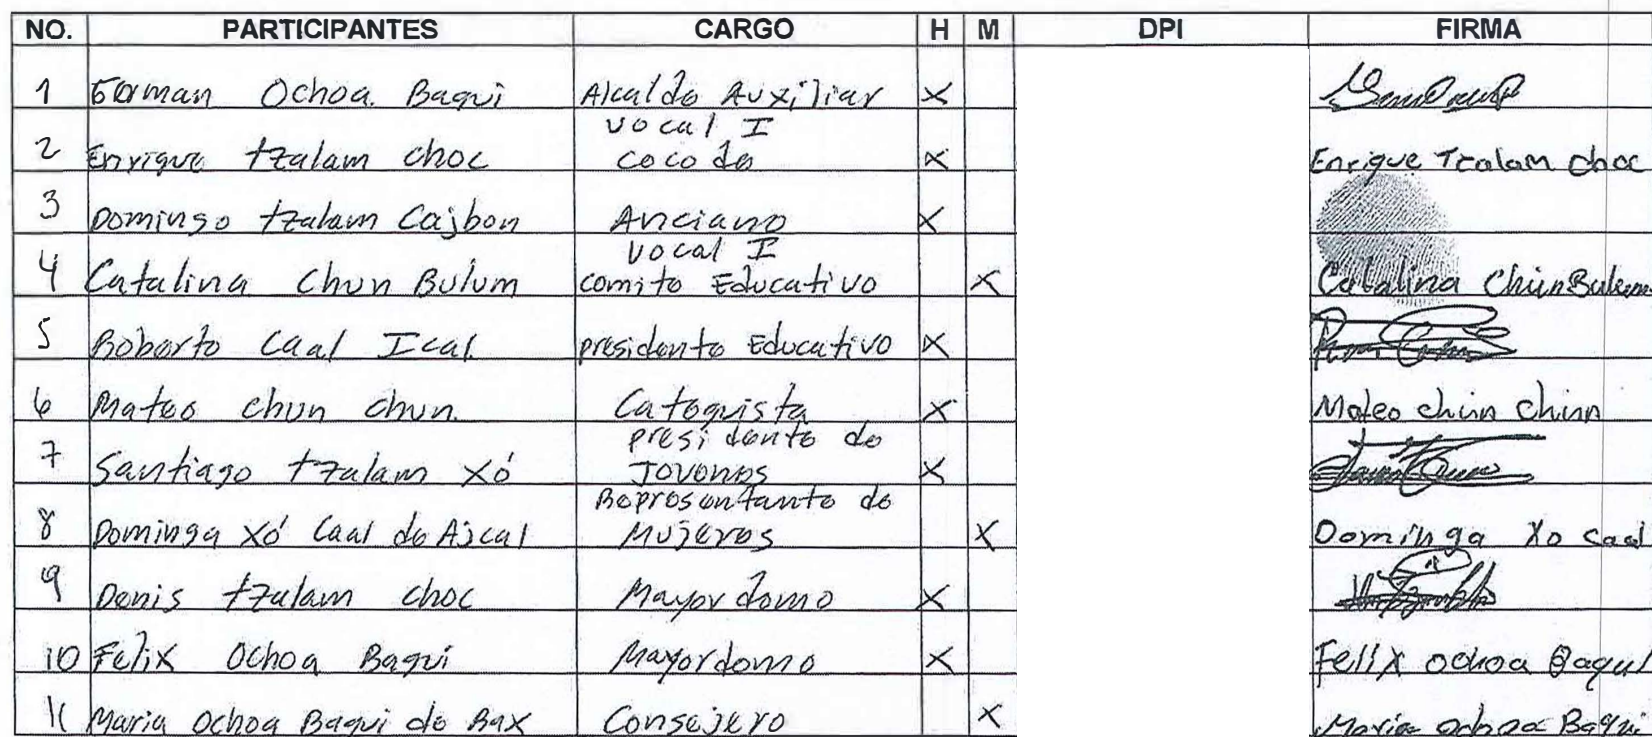 NO. PARTICIPANTES CARGO H M DPI FIRMA
1 German Ochoa. Baqui Alcalde Auxiliar X
vocal I
2 Enrique tzalam choc cocode X Enrique Tzalam choc
3 Domingo tzalam Cajbon Anciano X
vocal I
4 Catalina Chun Bulum comite Educativo X Catalina Chun Bulum
5 Roberto Caal Ical. presidente Educativo X
6 Mateo chun chun. Catequista X Mateo chun chun
presidente de
7 Santiago tzalam Xó Jovenes X
Representante de
8 Dominga Xó Caal de Ajcal Mujeres X Dominga Xo caal
9 Denis tzalam choc Mayordomo X
10 Felix Ochoa Baqui Mayordomo X Felix ochoa Baqui
11 Maria Ochoa Baqui de Bax Consejero X Maria ochoa Baqui